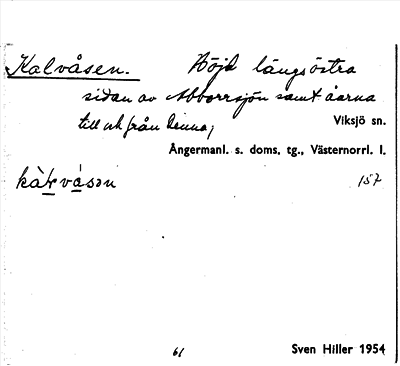 Kalvåsen. Höjd längs östra
sidan av Abborrsjön samt åarna
till och från denna,
Viksjö sn.
Ångermanl. s. doms. tg., Västernorrl. l.
kàl̥vása̱n 157
61 Sven Hiller 1954